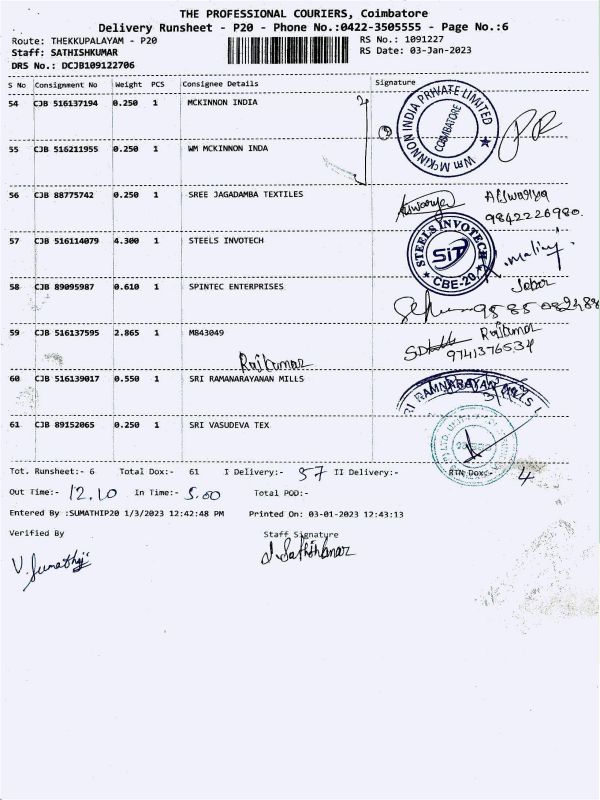 THE PROFESSIONAL COURIERS, Coimbatore
Delivery Runsheet - P20 - Phone No.:0422-3505555 - Page No.:6
Route: THEKKUPALAYAM - P20
RS No.: 1091227
Staff: SATHISHKUMAR
RS Date: 03-Jan-2023
DRS No.: DCJB109122706
S No Consignment No Weight PCS Consignee Details Signature
54 CJB 516137194 0.250 1 MCKINNON INDIA
WM MCKINNON INDIA PRIVATE LIMITED
COIMBATORE
55 CJB 516211955 0.250 1 WM MCKINNON INDA
56 CJB 88775742 0.250 1 SREE JAGADAMBA TEXTILES
Aishwariya
9842226980.
57 CJB 516114079 4.300 1 STEELS INVOTECH
STEELS INVOTECH
SIT
CBE-20
Malini
58 CJB 89095987 0.610 1 SPINTEC ENTERPRISES
59 CJB 516137595 2.865 1 M843049
Rajkumar
9741376534
Rajkumar
60 CJB 516139017 0.550 1 SRI RAMANARAYANAN MILLS
61 CJB 89152065 0.250 1 SRI VASUDEVA TEX
Tot. Runsheet:- 6 Total Dox:- 61 I Delivery:- 57 II Delivery:- RTN Dox:- 4
Out Time:- 12.10 In Time:- 5.00 Total POD:-
Entered By :SUMATHIP20 1/3/2023 12:42:48 PM Printed On: 03-01-2023 12:43:13
Verified By Staff Signature
V. Sumathi